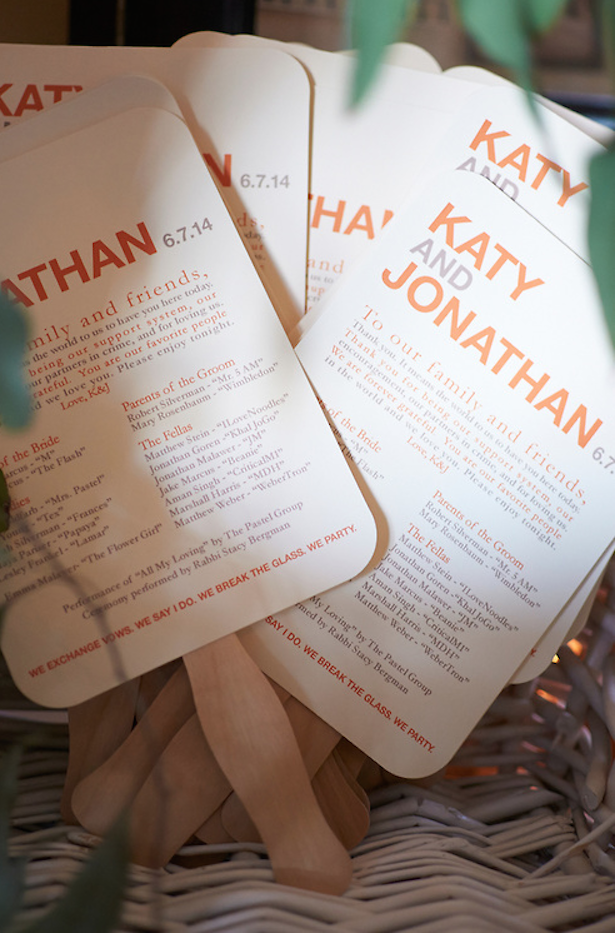 KAT
N 6.7.14
THA
and
KATY
AND
ATHAN 6.7.14
mily and friends,
the world to us to have you here today.
being our support system, our
our partners in crime, and for loving us.
rateful. You are our favorite people
d we love you. Please enjoy tonight.
Love, K&J
of the Bride
Marcus - "M"
"The Flash"
"Mrs. Pastel"
"Tex"
Silverman - "Frances"
"Papaya"
"Lamar"
"The Flower Girl"
Parents of the Groom
Robert Silverman - "Mr. 5 AM"
Mary Rosenbaum - "Wimbledon"
The Fellas
Matthew Stein - "ILoveNoodles"
Jonathan Goren - "Khal JoGo"
Jonathan Malawer - "JM"
Jake Marcus - "Beanie"
Aman Singh - "CriticalMI"
Marshall Harris - "MDH"
Matthew Weber - "WeberTron"
Performance of "All My Loving" by The Pastel Group
Ceremony performed by Rabbi Stacy Bergman
WE EXCHANGE VOWS. WE SAY I DO. WE BREAK THE GLASS. WE PARTY.
KATY
AND
JONATHAN 6.7
To our family and friends,
Thank you. It means the world to us to have you here today.
Thank you for being our support system, our
encouragement, our partners in crime, and for loving us.
We are forever grateful. You are our favorite people
in the world and we love you. Please enjoy tonight.
Love, K&J
of the Bride
Flash"
Parents of the Groom
Robert Silverman - "Mr. 5 AM"
Mary Rosenbaum - "Wimbledon"
The Fellas
Matthew Stein - "ILoveNoodles"
Jonathan Goren - "Khal JoGo"
Jonathan Malawer - "JM"
Jake Marcus - "Beanie"
Aman Singh - "CriticalMI"
Marshall Harris - "MDH"
Matthew Weber - "WeberTron"
My Loving" by The Pastel Group
med by Rabbi Stacy Bergman
SAY I DO. WE BREAK THE GLASS. WE PARTY.